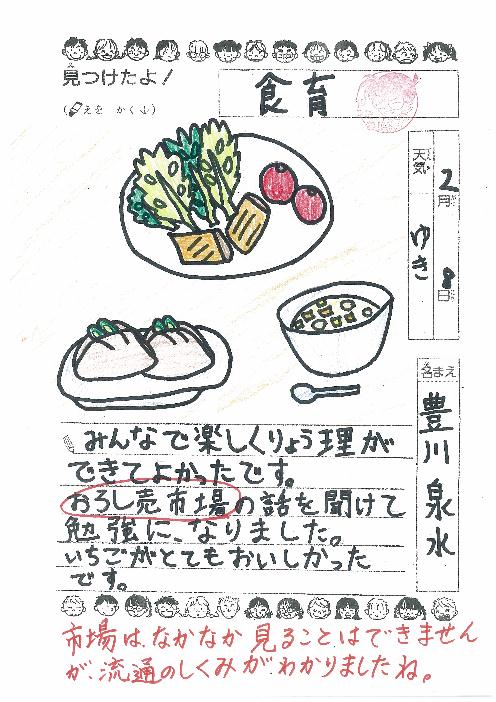 見つけたよ!
食育
(えを かく↓)
2月8日
天気 ゆき
名まえ
豊川泉水
みんなで楽しくりょう理が
できてよかったです。
おろし売市場の話を聞けて
勉強に、なりました。
いちごがとてもおいしかった
です。
市場は、なかなか見ることはできません
が、流通のしくみが、わかりましたね。